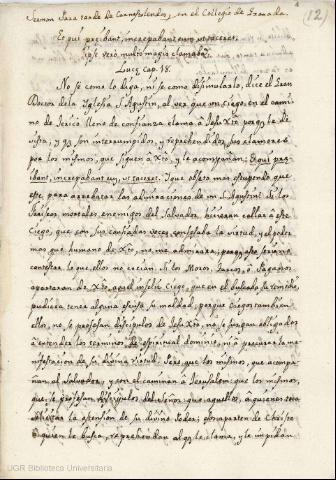 12
Sermon para tarde de Carnestolendas, en el Collegio de Granada.
Et qui præibant, increpabant eum ut taceret.
Ipse vero multo magis clamabat.
Lucæ Cap. 18.
No se como lo diga, ni se como dissimularlo, dice el Gran
Doctor de la Iglesia S. Agustin, al ver que un Ciego, en el cami-
no de Jericó lleno de confianza clama a Jesu Xto. porq. le de
vista, y q. son interrumpidos, y reprehendidos sus clamores
por los mismos, que siguen a Xto, y le acompañan: Et qui præ-
ibant, increpabant eum, ut taceret. Que objeto mas estupendo que
este para arrebatar las admiraciones de un S. Agustin! Si los
fariseos, mortales enemigos del Salvador, hicieran callar a este
Ciego, que con sus voces confesaba la virtud, y el poder
mas que humano de Xto, no me admirara; porq.
contestar lo que ellos no creian. Si los Moros, o Paganos
apartaran de Xto. a el infeliz Ciego, que en el
pudiera tener alguna escusa su maldad, porque Ciegos tambien
ellos, no se professan discipulos de Jesu Xto, no se juzgan obligados
a entender los terminos de espiritual dominio, ni a procurar la ma-
nifestacion de su divina virtud. Pero que los mismos, que acompa-
ñan al Salvador, y con el caminan a Jerusalen: que los mismos,
que se professan discipulos del Señor: que aquellos, a quienes toca
la extension de su divino poder; aparten de Christo
a quien le busca, reprehendan al q. le clama, y le impidan
UGR Biblioteca Universitaria